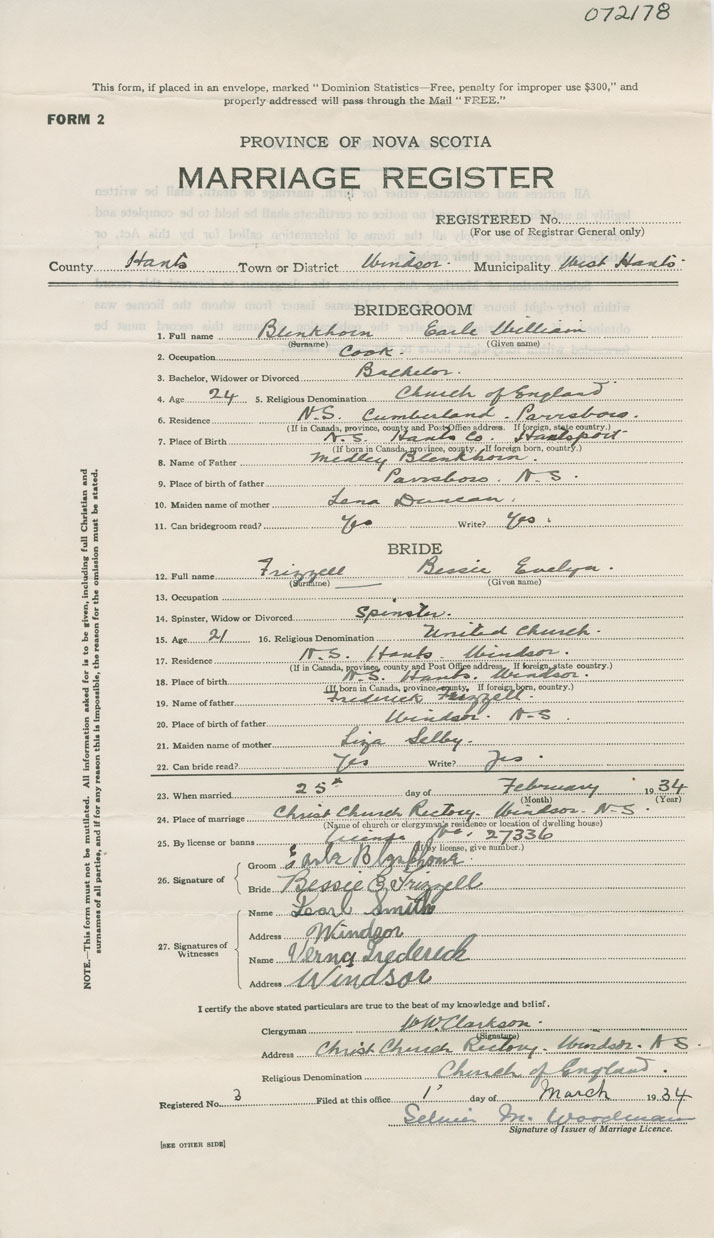 072178
This form, if placed in an envelope, marked "Dominion Statistics—Free, penalty for improper use $300," and
properly addressed will pass through the Mail "FREE."
FORM 2
PROVINCE OF NOVA SCOTIA
MARRIAGE REGISTER
REGISTERED No.
(For use of Registrar General only)
County Hants Town or District Windsor. Municipality West Hants.
BRIDEGROOM
1. Full name Blenkhorn Earle William
(Surname) (Given name)
2. Occupation Cook.
3. Bachelor, Widower or Divorced Bachelor.
4. Age 24 5. Religious Denomination Church of England
6. Residence N.S. Cumberland. Parrsboro.
(If in Canada, province, county and Post Office address. If foreign, state country.)
7. Place of Birth N.S. Hants Co. Hantsport
(If born in Canada, province, county. If foreign born, country.)
8. Name of Father Medley Blenkhorn.
9. Place of birth of father Parrsboro. N.S.
10. Maiden name of mother Lena Duncan.
11. Can bridegroom read? Yes Write? Yes.
BRIDE
12. Full name Frizzell Bessie Evelyn.
(Surname) (Given name)
13. Occupation
14. Spinster, Widow or Divorced Spinster.
15. Age 21 16. Religious Denomination United Church.
17. Residence N.S. Hants. Windsor.
(If in Canada, province, county and Post Office address. If foreign, state country.)
18. Place of birth N.S. Hants. Windsor.
(If born in Canada, province, county, If foreign born, country.)
19. Name of father Frederick Frizzell.
20. Place of birth of father Windsor. N-S.
21. Maiden name of mother Liza Selby.
22. Can bride read? Yes Write? Yes.
23. When married 25th day of February 1934
(Month) (Year)
24. Place of marriage Christ Church Rectory. Windsor. N-S.
(Name of church or clergyman's residence or location of dwelling house)
25. By license or banns License No. 27336
(If by license, give number.)
26. Signature of
Groom Earle Blenkhorne
Bride Bessie E Frizzell
27. Signatures of
Witnesses
Name Pearl Smith
Address Windsor
Name Verna Frederick
Address Windsor
I certify the above stated particulars are true to the best of my knowledge and belief.
Clergyman W.W. Clarkson.
(Signature)
Address Christ Church Rectory. Windsor. N S.
Religious Denomination Church of England.
Registered No. 3 Filed at this office 1' day of March 1934
M. Woodman
Signature of Issuer of Marriage Licence.
[SEE OTHER SIDE]
NOTE.—This form must not be mutilated. All information asked for is to be given, including full Christian and
surnames of all parties, and if for any reason this is impossible, the reason for the omission must be stated.